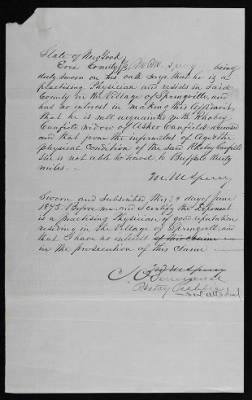 State of New York
Erie County } W. M. being
duly sworn on his oath says that he is a
practising Physician and resides in Said
County in the Village of Springville and
has no interest in making this Affidavit,
that he is well acquainted with Rhobey
Canfield widow of Asher Canfield deceased
and that from the infirmities of Age the
physical condition of the said Rhobey Canfield
She is not able to travel to Buffalo thirty
miles
Sworn and Subscribed this day of June
1875 Before me and I certify the Deponent
is a practising Physician of good reputation
residing in the Village of Springville and
that I have no interest
in the prosecution of this Claim
Notary Public